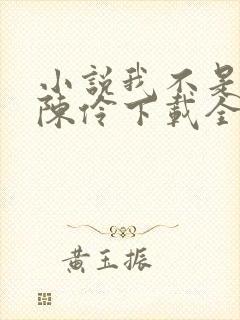 小說我不是
陳伶下載全
黃玉振